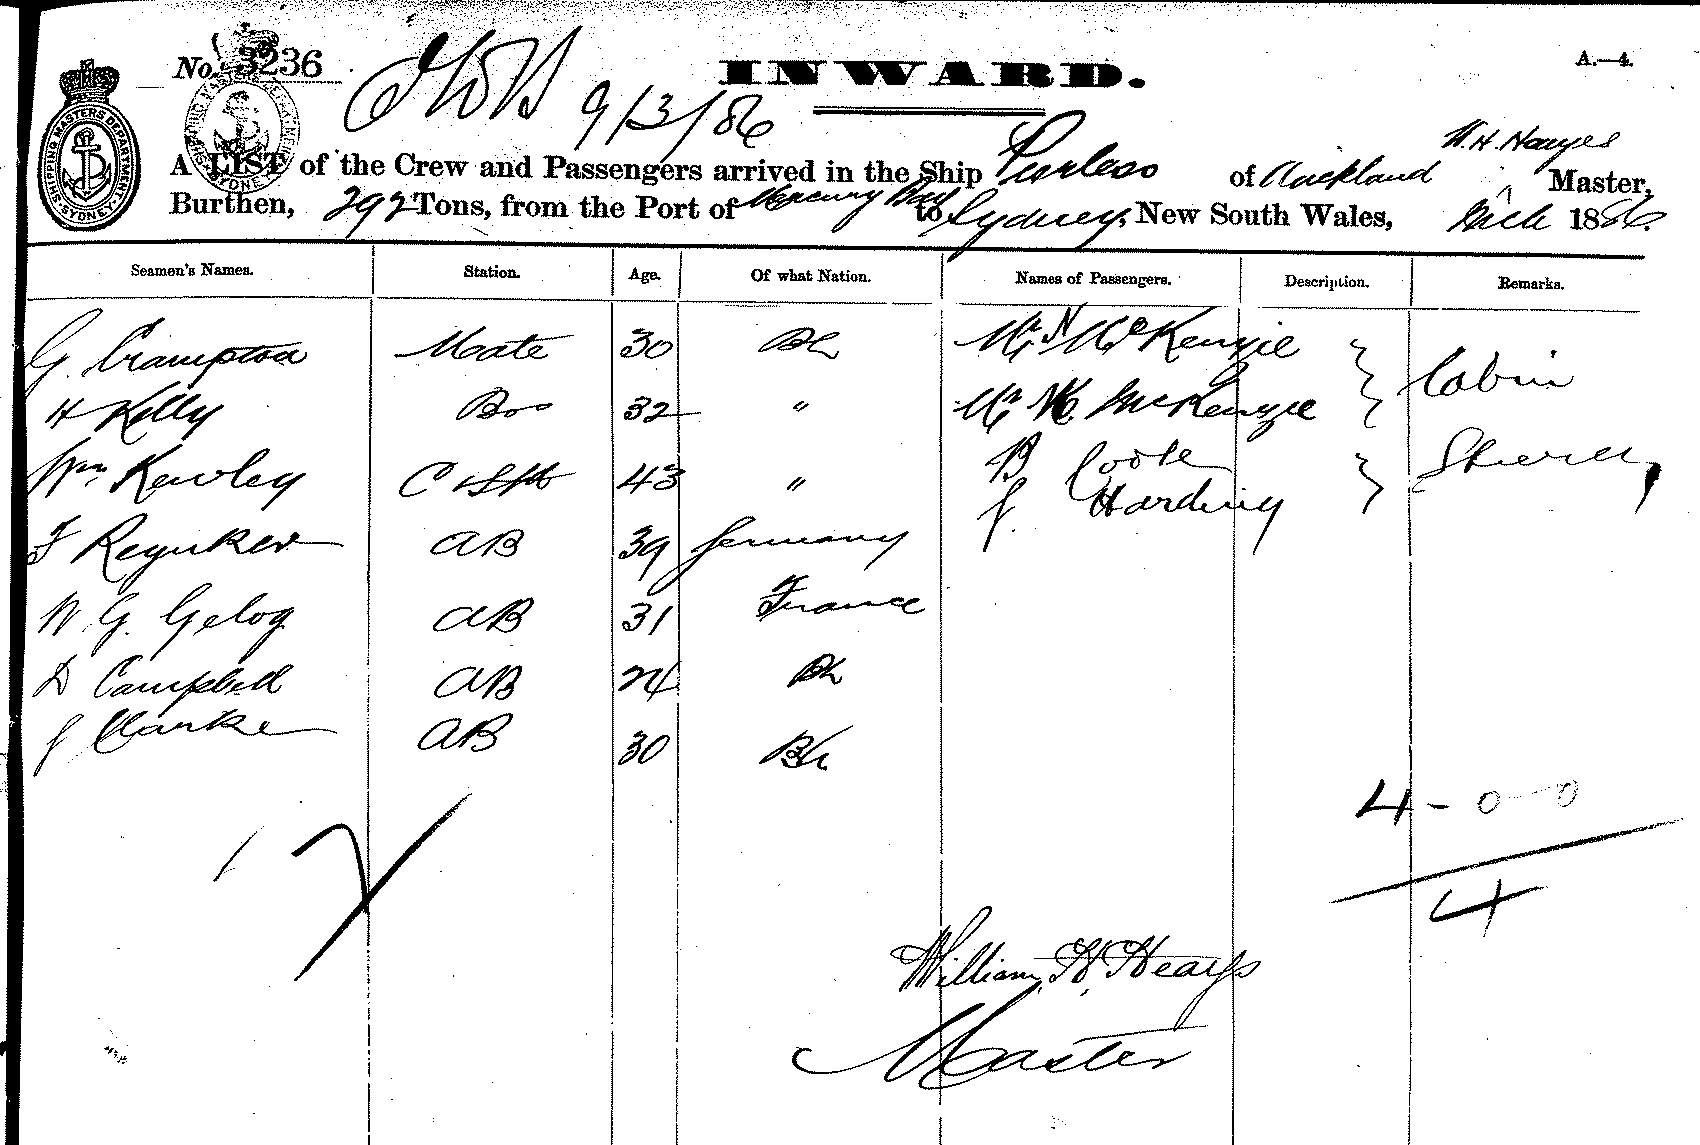 No. 3236
9/3/86
INWARD.
A.—4.
SHIPPING MASTERS DEPARTMENT SYDNEY
W. H. Hayes
A LIST of the Crew and Passengers arrived in the Ship Peerless of Auckland Master,
Burthen, 292 Tons, from the Port of Mercury Bay to Sydney, New South Wales, Mch 1886.
Seamen's Names. Station. Age. Of what Nation. Names of Passengers. Description. Remarks.
G. Crampton Mate 30 Bh Mr N McKenzie Cabin
H Kelly Bos 32 " Mr McKenzie
Wm Kewley C & St 43 " B Coote
J. Harding
F Reynker AB 39 Germany
W. G. Gelog AB 31 France
D Campbell AB 24 Bh
J Clarke AB 30 Bh
4 - 0 - 0
17
4
William H. Heays
Master